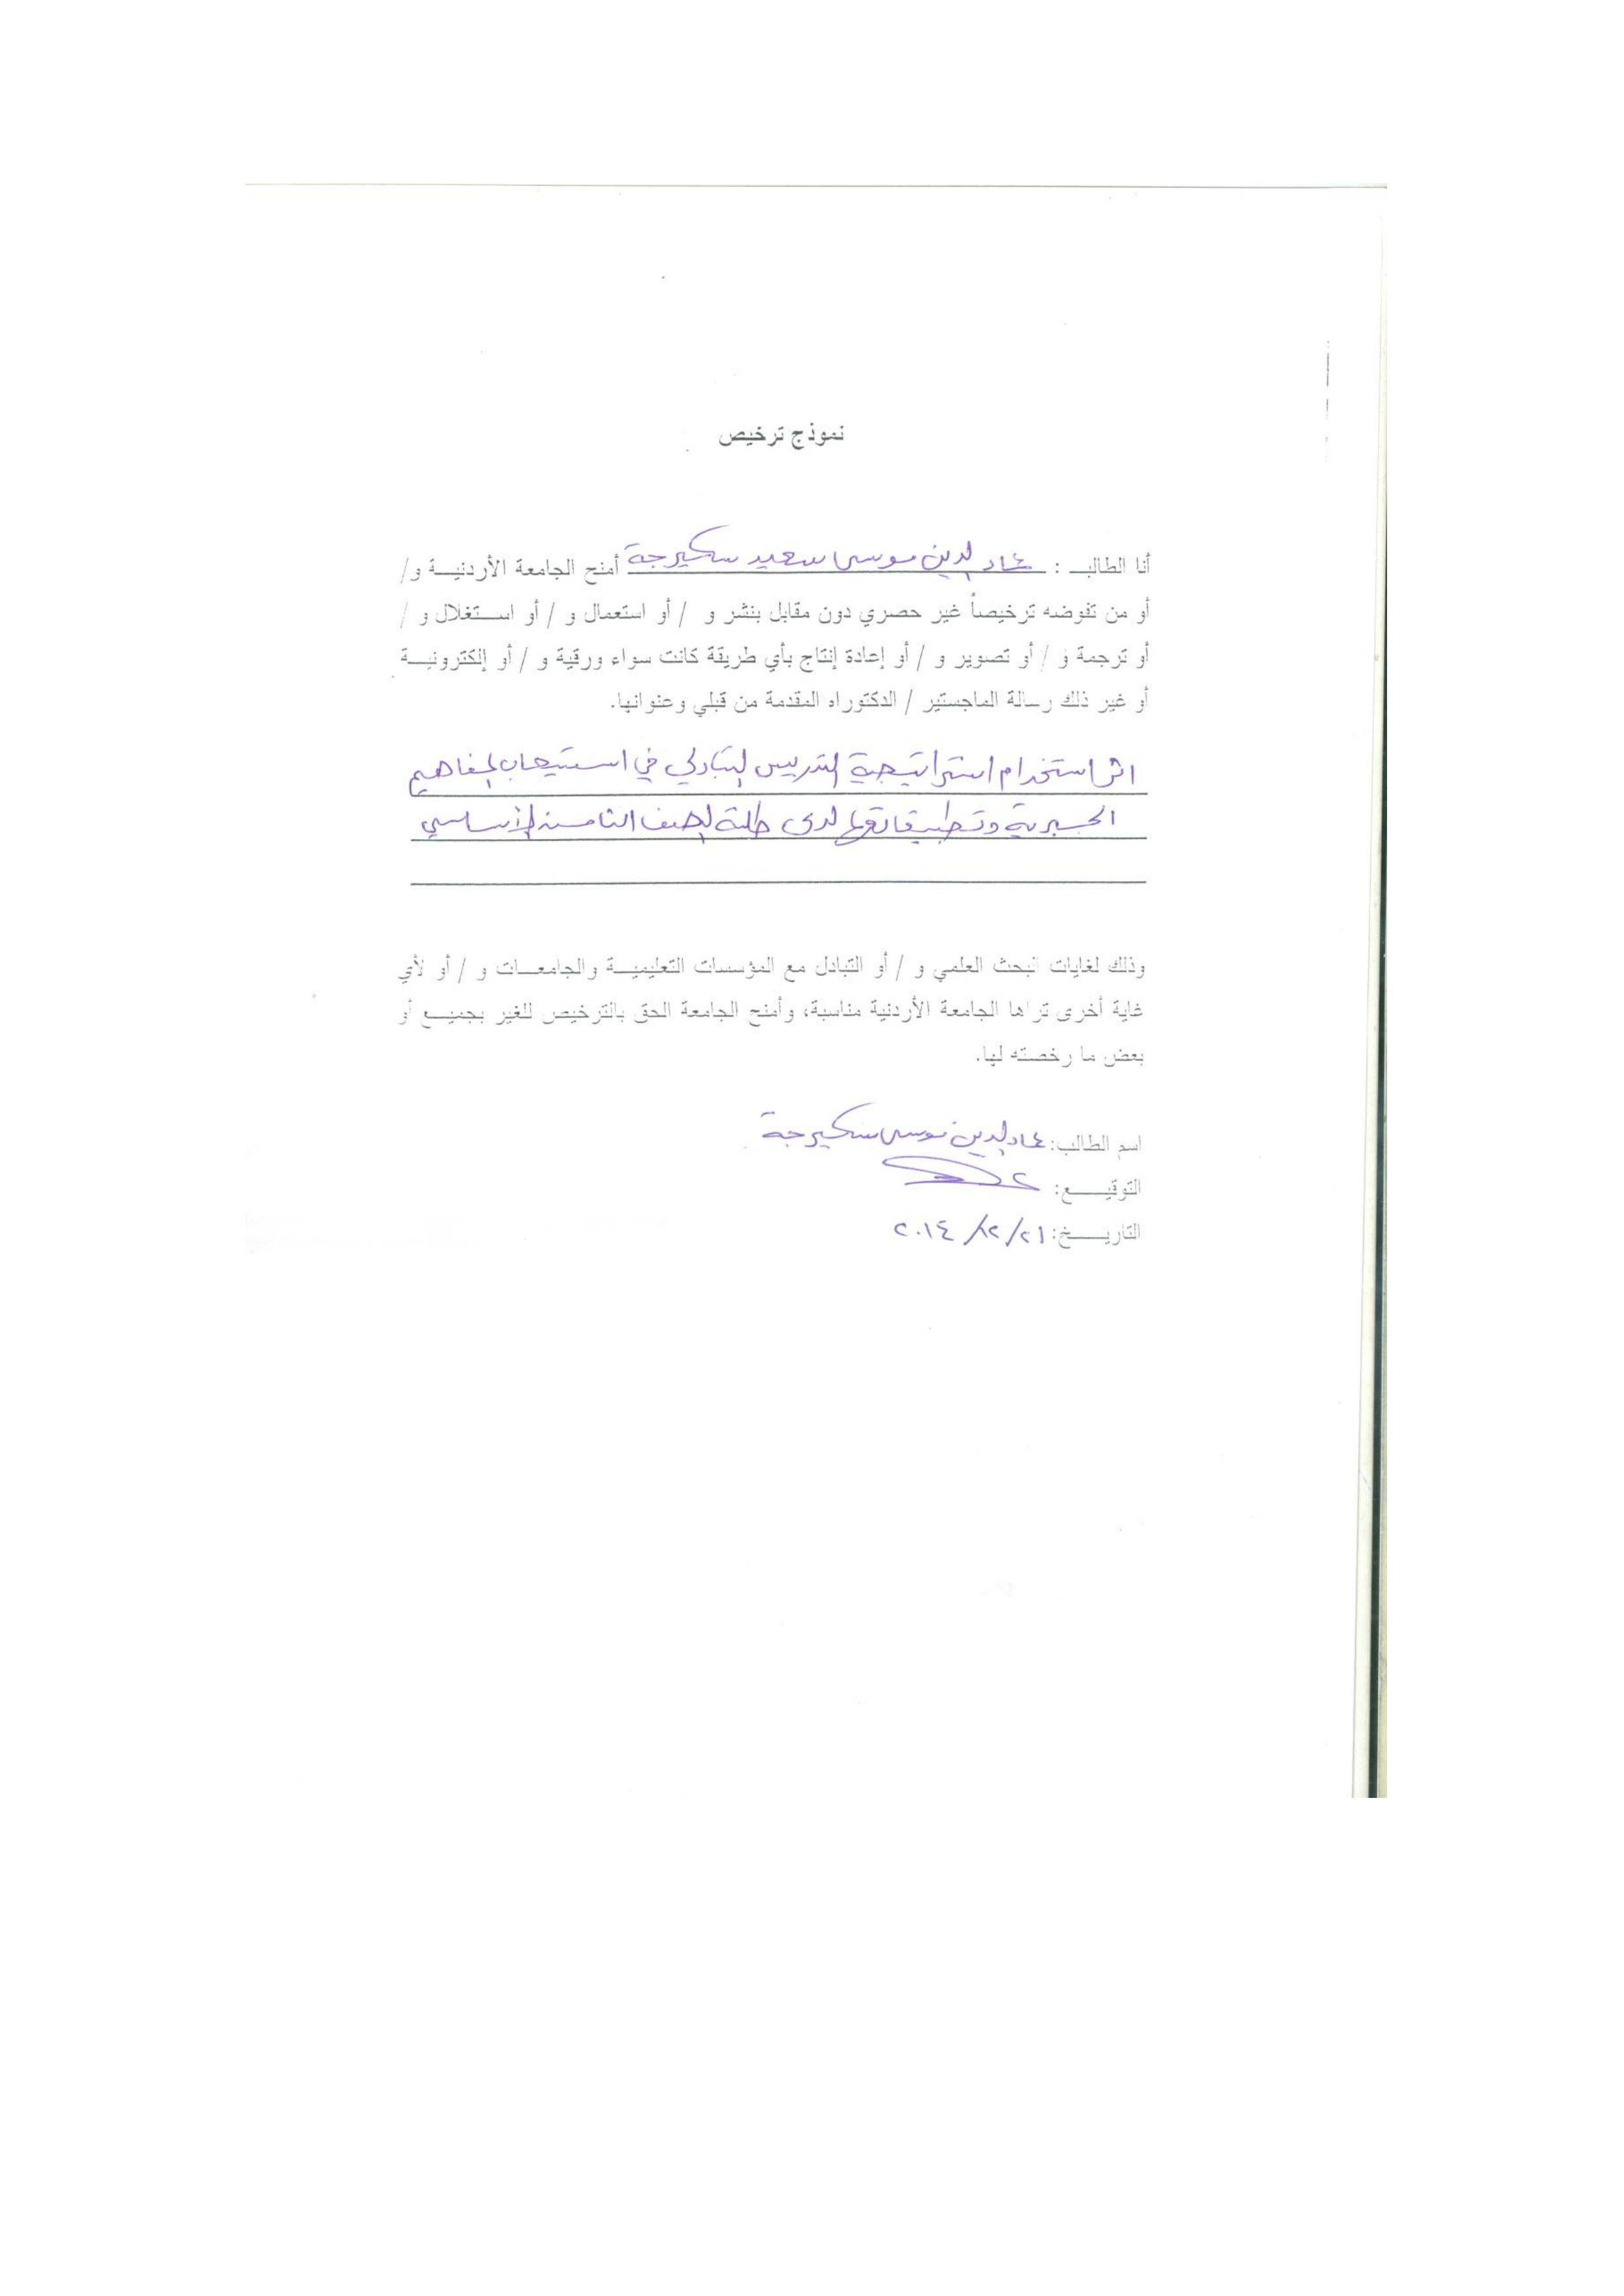 نموذج ترخيص
أنا الطالب : عماد الدين موسى سعيد سكيرجة أمنح الجامعة الأردنية و/
أو من تفوضه ترخيصاً غير حصري دون مقابل بنشر و / أو استعمال و / أو استغلال و /
أو ترجمة و / أو تصوير و / أو إعادة إنتاج بأي طريقة كانت سواء ورقية و / أو إلكترونية
أو غير ذلك رسالة الماجستير / الدكتوراه المقدمة من قبلي وعنوانها.
اثر استخدام استراتيجية التدريس التبادلي في استيعاب المفاهيم
الجبرية وتطبيقاتها لدى طلبة الصف الثامن الأساسي
وذلك لغايات البحث العلمي و / أو التبادل مع المؤسسات التعليمية والجامعات و / أو لأي
غاية أخرى تراها الجامعة الأردنية مناسبة، وأمنح الجامعة الحق بالترخيص للغير بجميع أو
بعض ما رخصته لها.
اسم الطالب: عماد الدين موسى سكيرجة
التوقيع:
التاريخ: ٢٠١٤/١٢/٢١